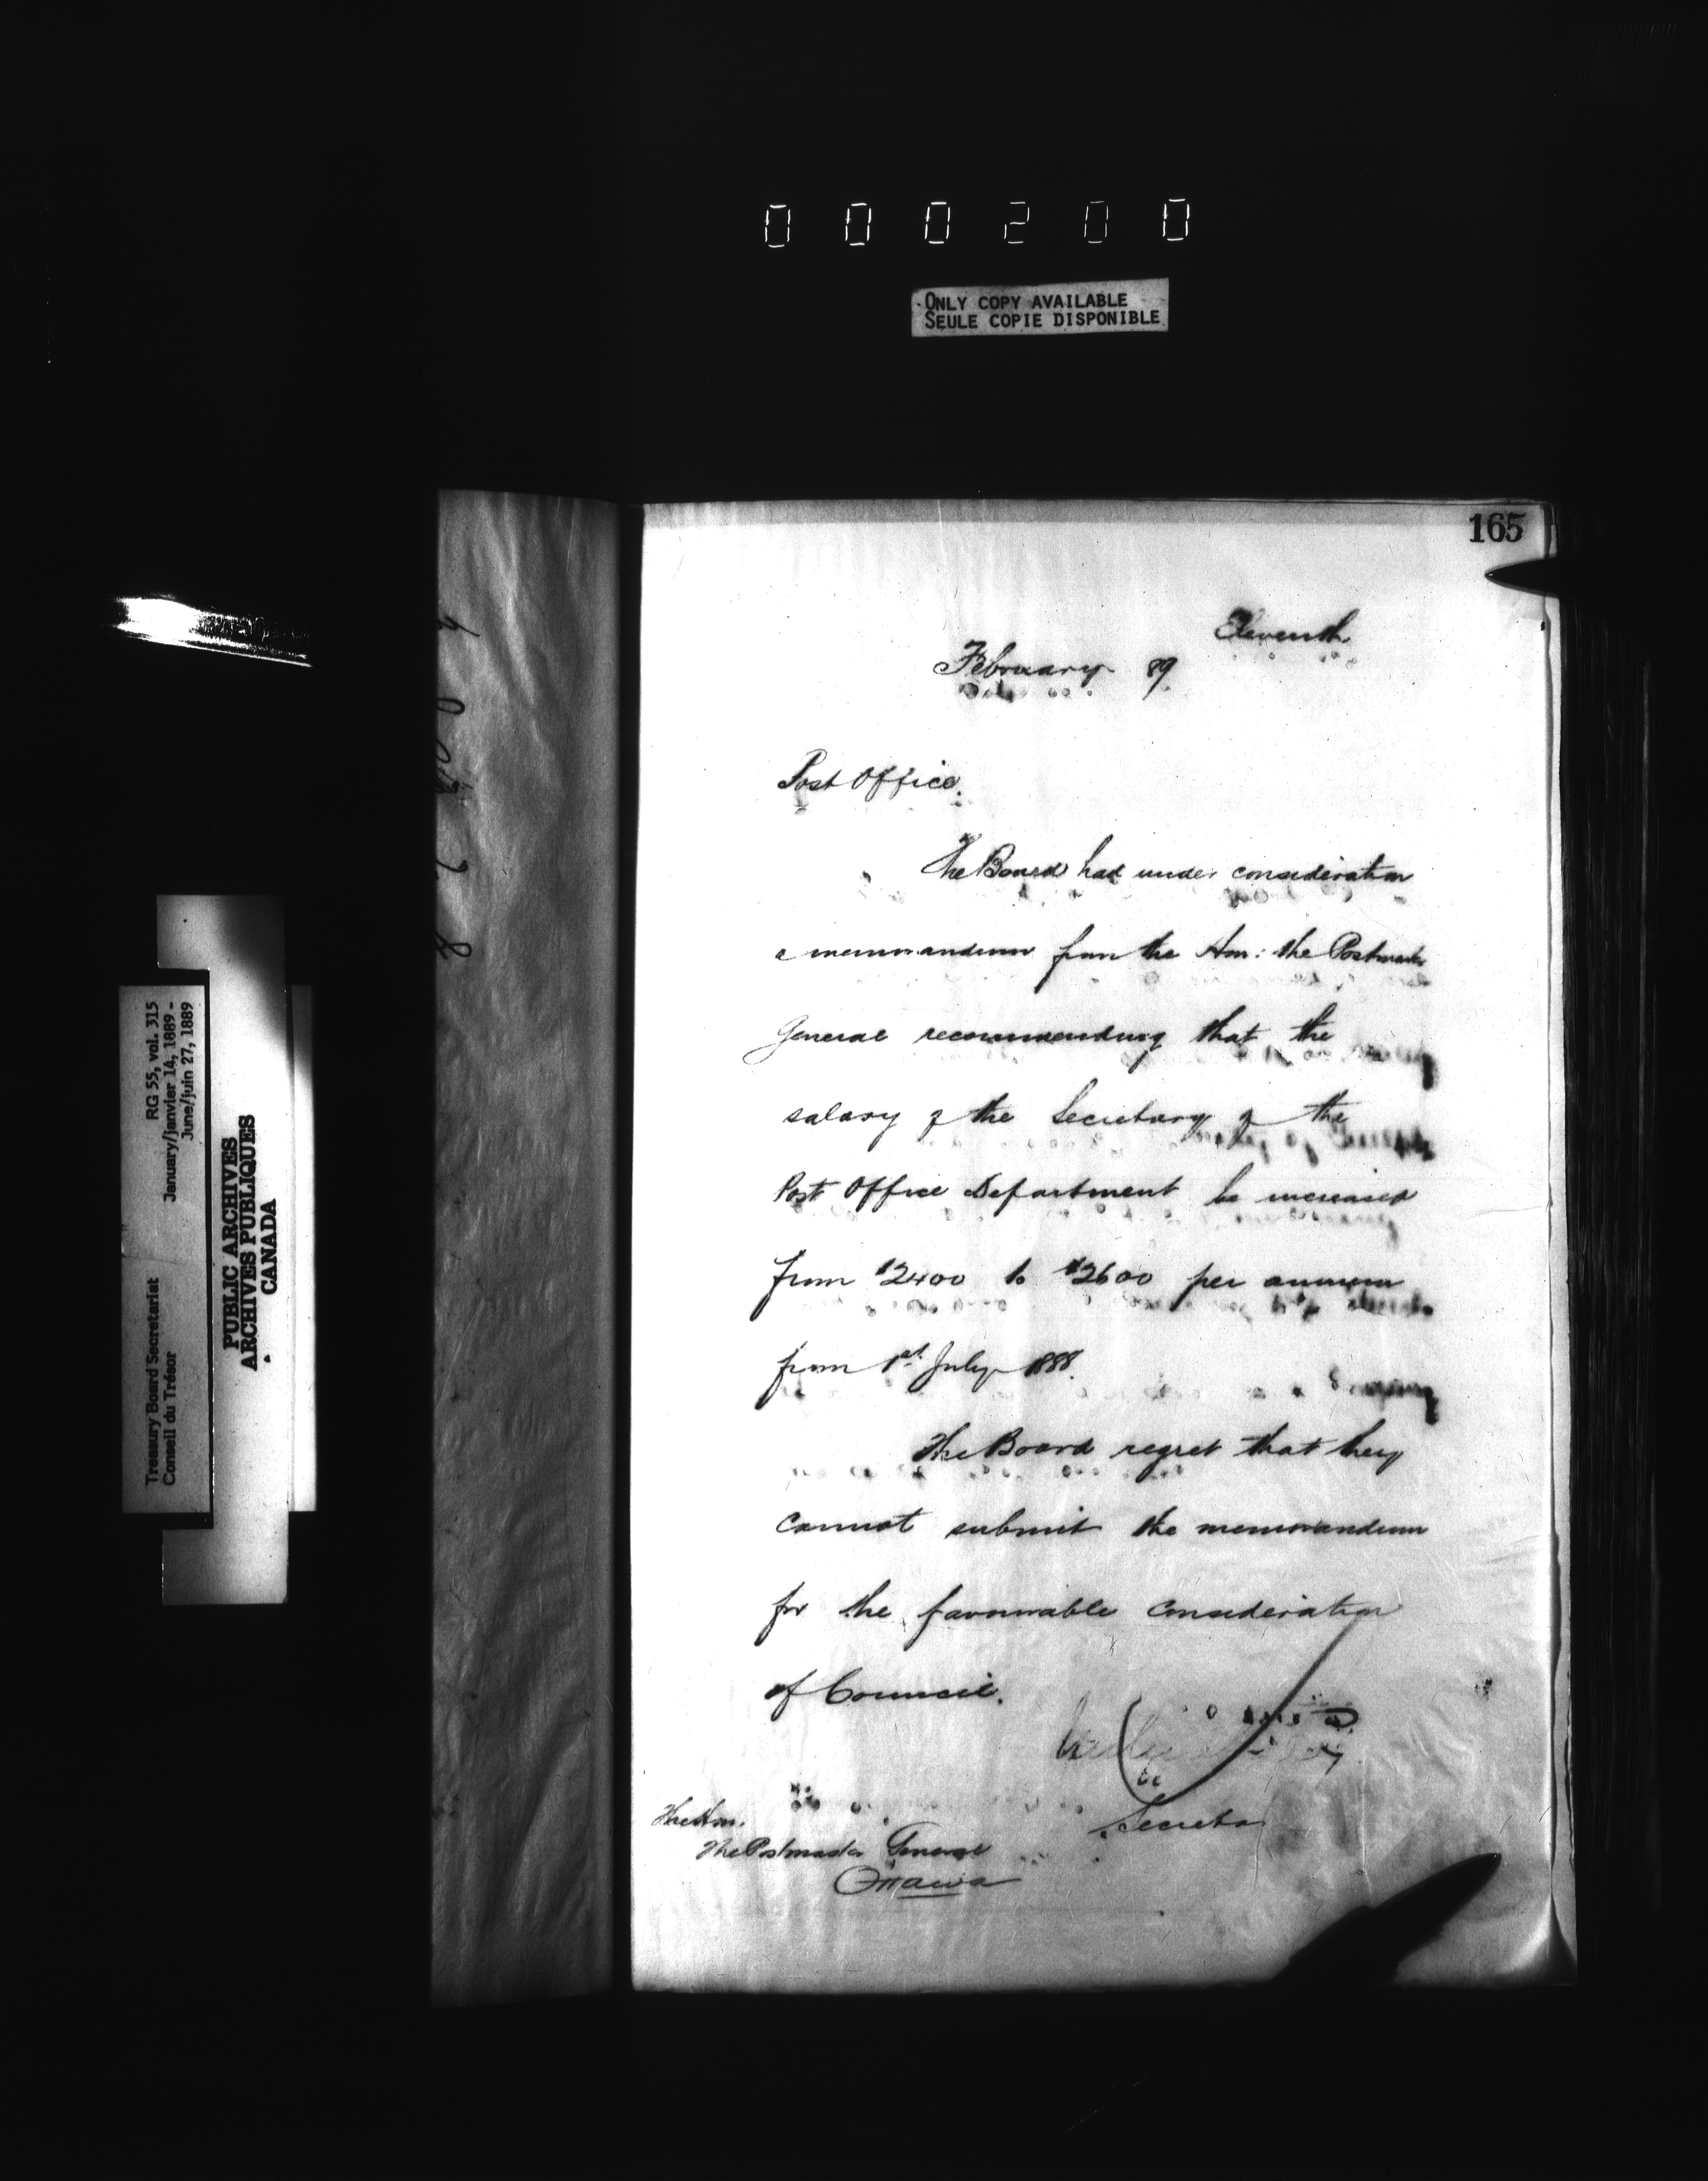 000200
ONLY COPY AVAILABLE
SEULE COPIE DISPONIBLE
165
Eleventh
February 89
Post Office.
The Board had under consideration
a memorandum from the Hon: the Postmaster
General recommending that the
salary of the Secretary of the
Post Office Department be increased
from $2400 to $2600 per annum
from 1st July 1888.
The Board regret that they
cannot submit the memorandum
for the favourable consideration
of Council.
Secretary
The Hon.
The Postmaster General
Ottawa
Treasury Board Secretariat RG 55, vol. 315
Conseil du Trésor January/janvier 14, 1889 -
June/juin 27, 1889
PUBLIC ARCHIVES
ARCHIVES PUBLIQUES
CANADA